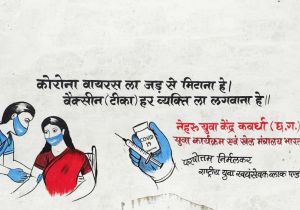 कोरोना वायरस ला जड़ से मिटाना हे।
वैक्सीन (टीका) हर व्यक्ति ला लगवाना हे॥
COVID
19
नेहरू युवा केंद्र कवर्धा (छ.ग.)
युवा कार्यक्रम एवं खेल मंत्रालय भारत
निर्मलकर
राष्ट्रीय युवा स्वयंसेवक ब्लाक